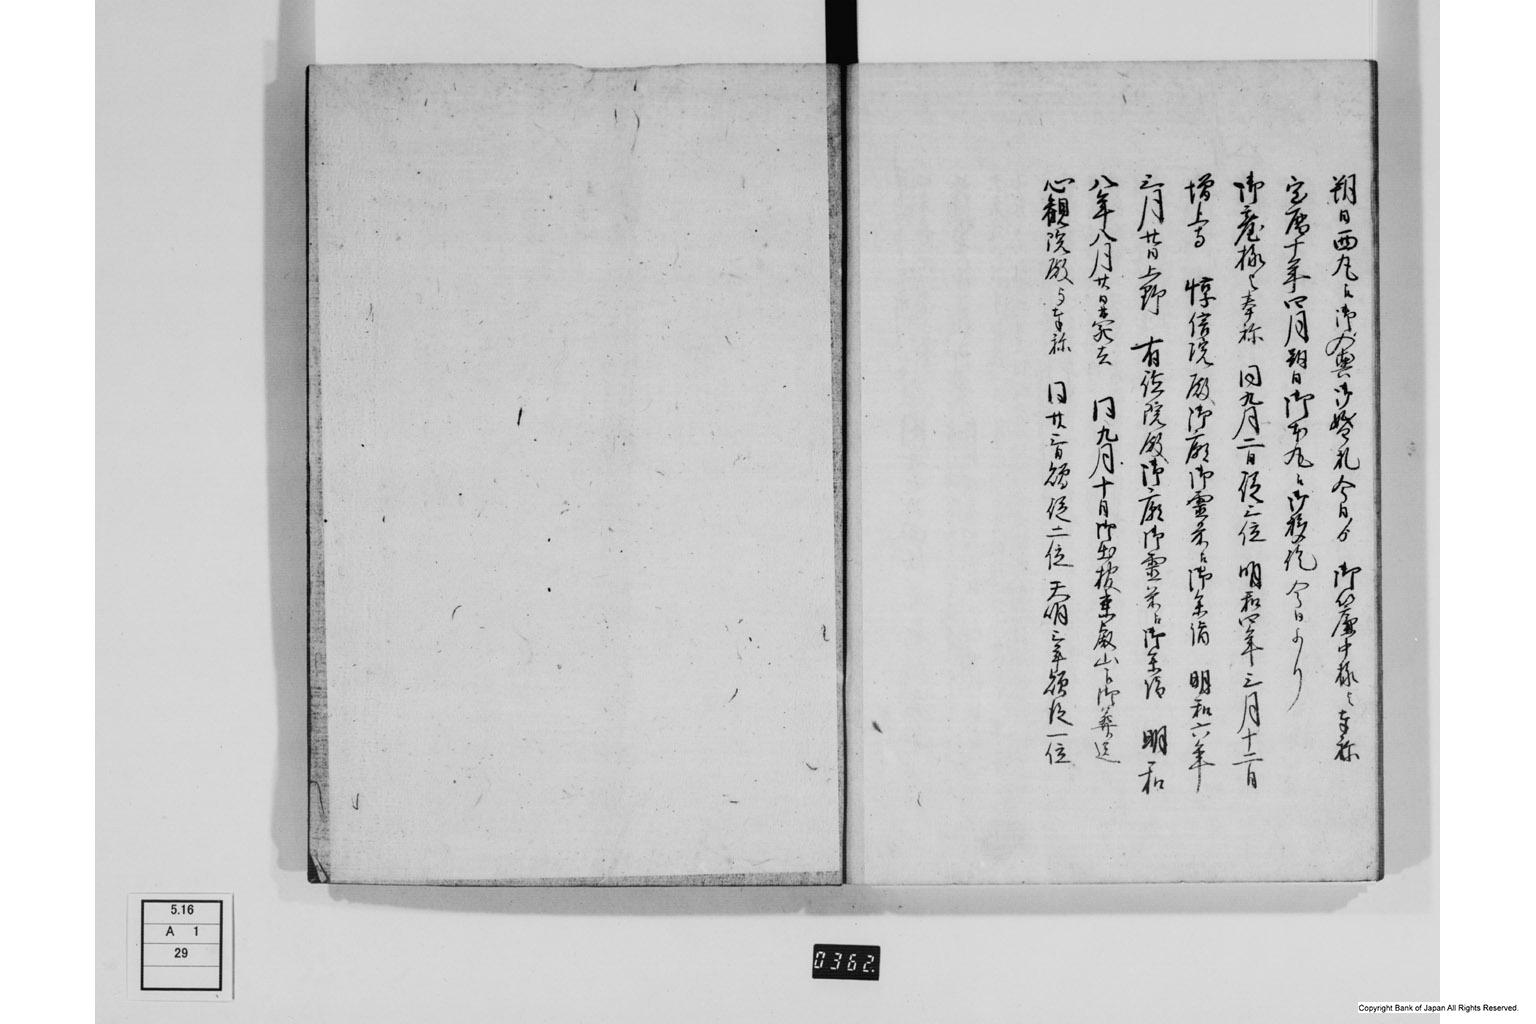 朔日西丸江御入輿御婚礼今日ゟ 御簾中様と奉称
宝暦十年四月朔日御本丸江御移徙今日より
御台様と奉称 同九月二日従三位 明和四年三月十二日
増上寺 惇信院殿御廟御霊前江御参詣 明和六年
三月廿日上野 有徳院殿御廟御霊前江御参詣 明和
八年八月廿日薨去 同九月十日御出棺東叡山江御葬送
心観院殿与奉称 同廿三日贈従二位 天明三年贈従一位
5.16
A 1
29
0362.
Copyright Bank of Japan All Rights Reserved.